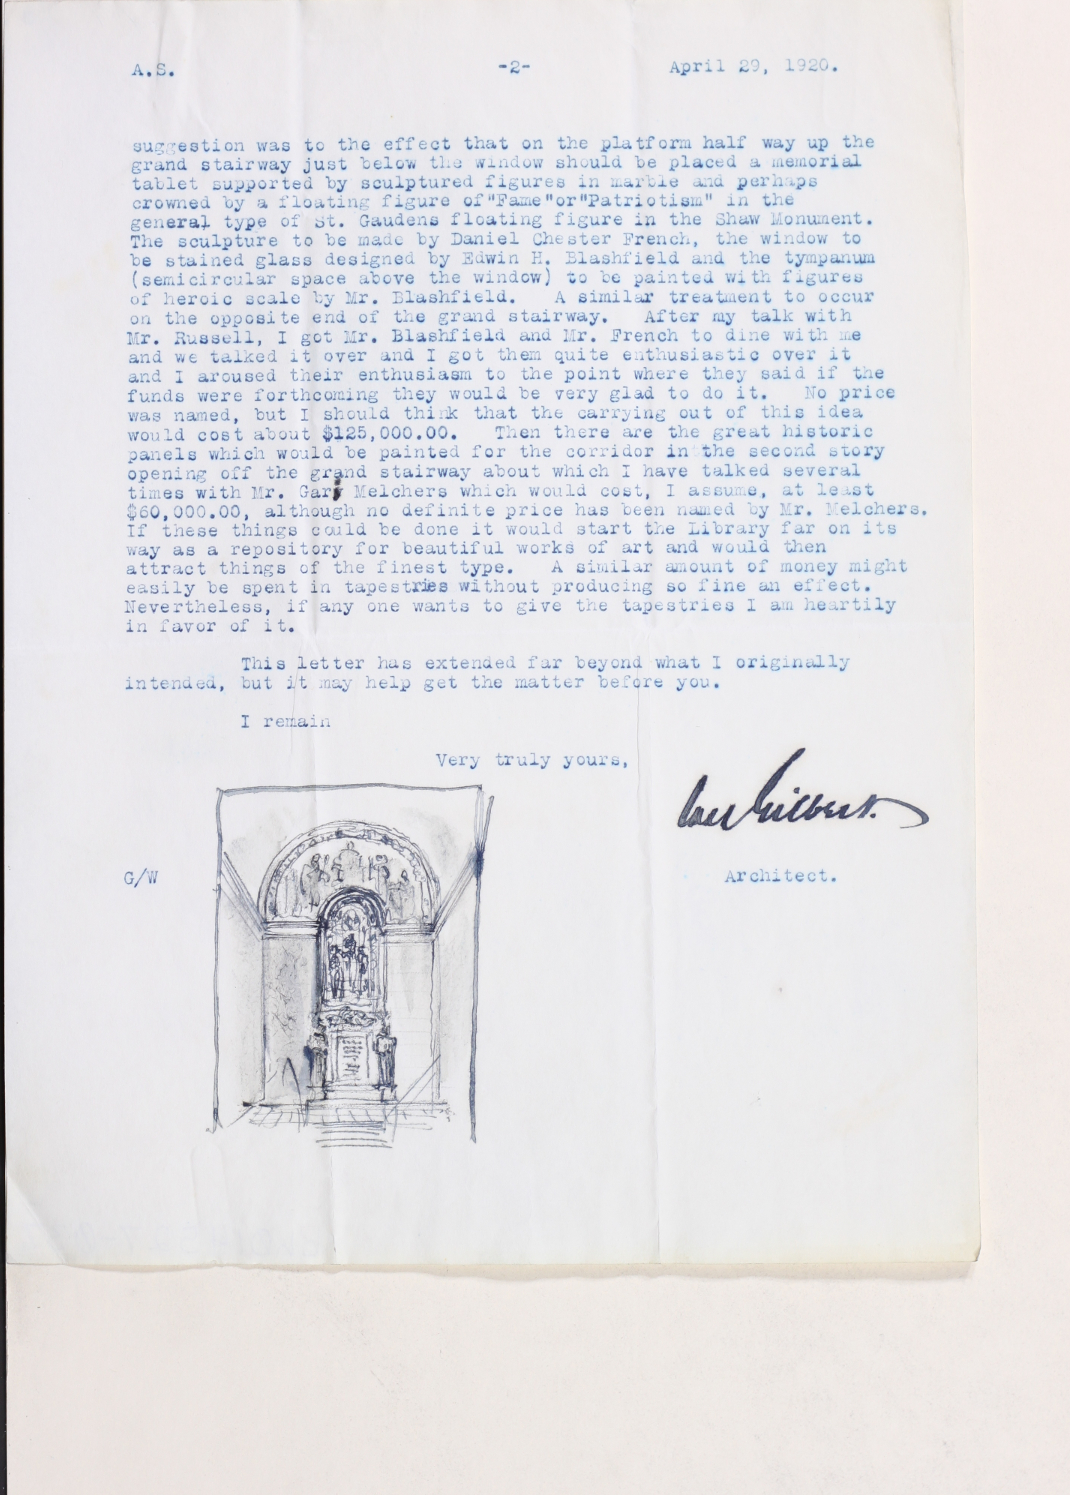 A.S. -2- April 29, 1920.
suggestion was to the effect that on the platform half way up the
grand stairway just below the window should be placed a memorial
tablet supported by sculptured figures in marble and perhaps
crowned by a floating figure of"Fame"or"Patriotism" in the
general type of St. Gaudens floating figure in the Shaw Monument.
The sculpture to be made by Daniel Chester French, the window to
be stained glass designed by Edwin H. Blashfield and the tympanum
(semicircular space above the window) to be painted with figures
of heroic scale by Mr. Blashfield. A similar treatment to occur
on the opposite end of the grand stairway. After my talk with
Mr. Russell, I got Mr. Blashfield and Mr. French to dine with me
and we talked it over and I got them quite enthusiastic over it
and I aroused their enthusiasm to the point where they said if the
funds were forthcoming they would be very glad to do it. No price
was named, but I should think that the carrying out of this idea
would cost about $125,000.00. Then there are the great historic
panels which would be painted for the corridor in the second story
opening off the grand stairway about which I have talked several
times with Mr. Gari Melchers which would cost, I assume, at least
$60,000.00, although no definite price has been named by Mr. Melchers.
If these things could be done it would start the Library far on its
way as a repository for beautiful works of art and would then
attract things of the finest type. A similar amount of money might
easily be spent in tapestries without producing so fine an effect.
Nevertheless, if any one wants to give the tapestries I am heartily
in favor of it.
This letter has extended far beyond what I originally
intended, but it may help get the matter before you.
I remain
Very truly yours,
Cass Gilbert.
G/W Architect.